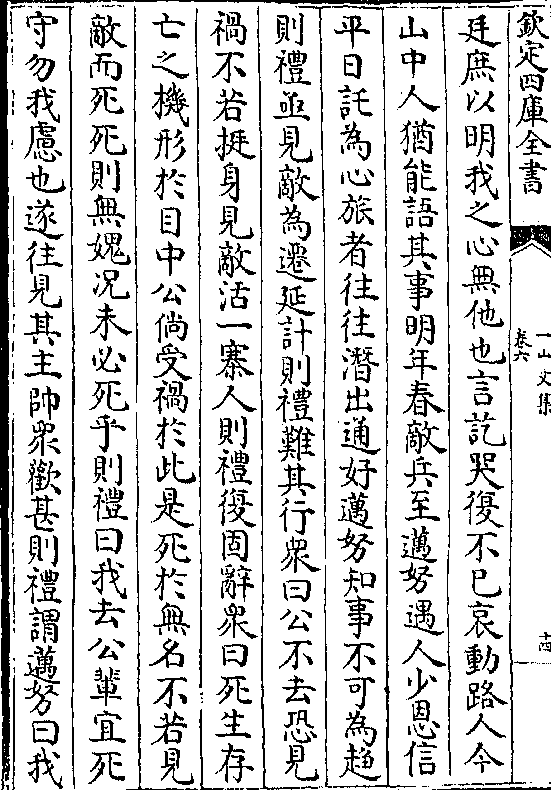 欽定四庫全書
一山文集
卷六
十四
廷庶以明我之心無他也言訖哭復不已哀動路人今
山中人猶能語其事明年春敵兵至邁努遇人少恩信
平日託為心旅者往往潛出通好邁努知事不可為趨
則禮亟見敵為遷延計則禮難其行衆曰公不去恐見
禍不若挺身見敵活一寨人則禮復固辭衆曰死生存
亡之機形於目中公倘受禍於此是死於無名不若見
敵而死死則無媿况未必死乎則禮曰我去公輩宜死
守勿我慮也遂往見其主帥衆歡甚則禮謂邁努曰我